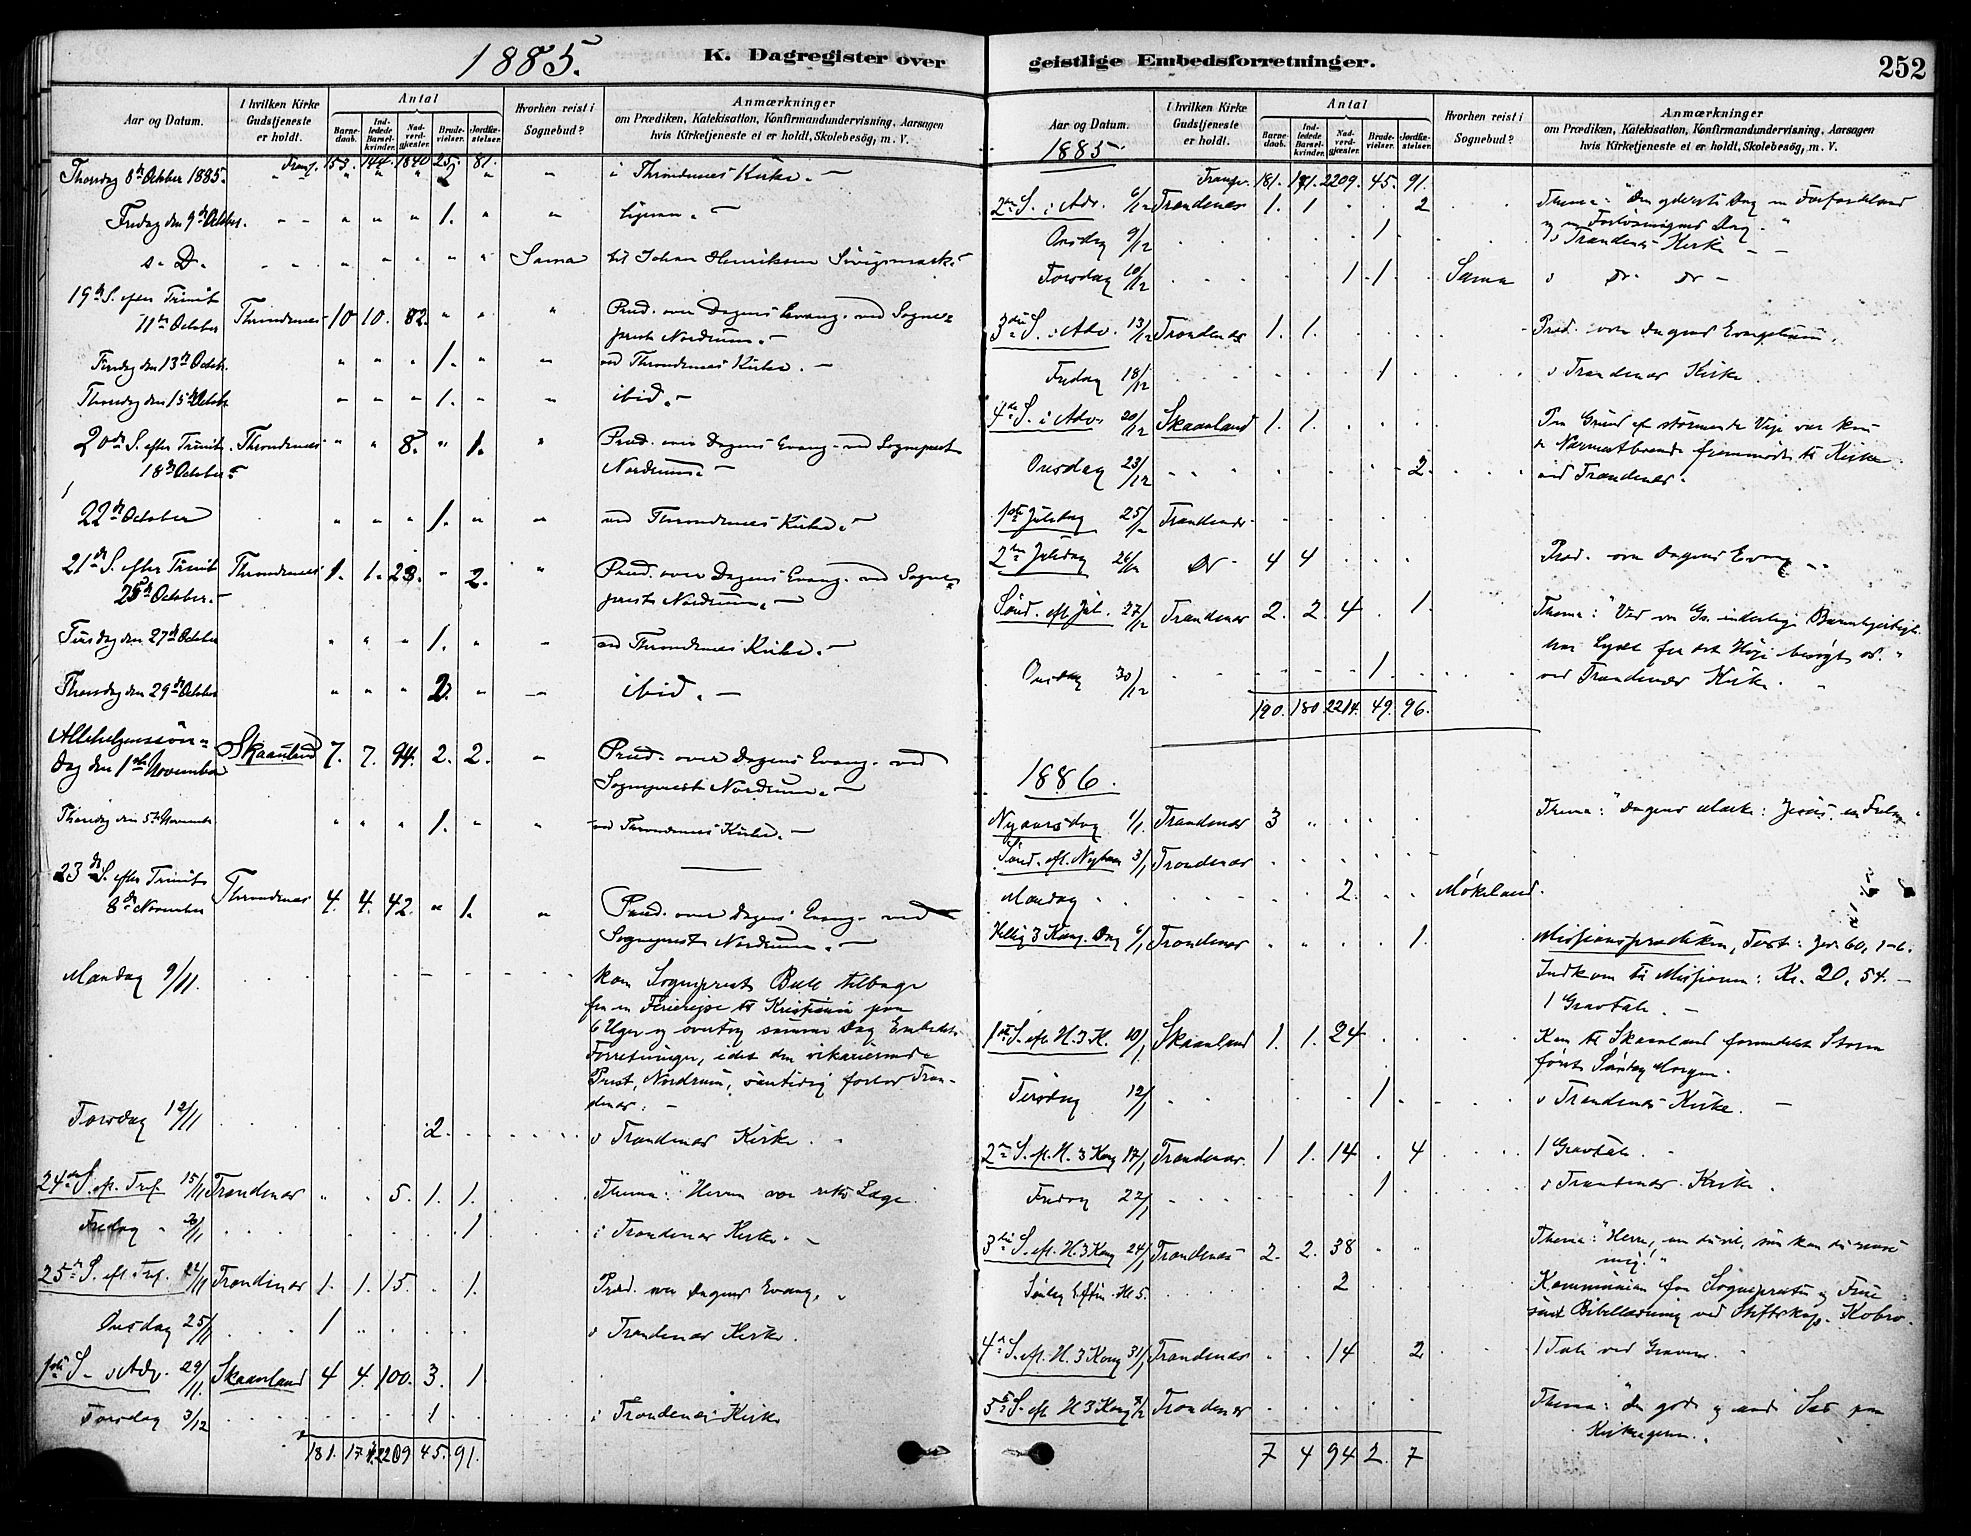 1885. K. Dagregister over
Aar og Datum. I hvilken Kirke Gudstjeneste er holdt. Antal Barnedaab. Indledede Barselkvinder. Nadverdgjæster. Brudevielser. Jordfæstelser. Hvorhen reist i Sognebud? Anmærkninger om Prædiken, Katekisation, Konfirmandundervisning, Aarsagen hvis Kirketjeneste ei er holdt, Skolebesög, m. V.
Transp. 153. 144. 1840 25. 81.
Thorsdag 8de October 1885. " " " " " " i Throndenes Kirke. —
Fredag den 9de Octbr. - - " " " 1. " "
s. D. " " " " " " " Sama til Johan Henriksen
19de S. efter Trinit. 11te October Throndenes 10 10. 82. " " " Præd. over Dagens Evang. ved Sogne=
prest Nordrum. —
Tirsdag den 13de Octob. " " " 1. " " ved Throndenes Kirke. —
Thorsdag den 15de Octob. " " " 1. " " ibid. —
20de S. efter Trinit. 18de October Throndenes " " 8. " 1. " Præd. over Dagens Evang. ved Sogneprest
Nordrum. —
22de October " " " 1. " " ved Throndenes Kirke. —
21de S. efter Trinit. 25de October. — Throndenes 1. 1. 23. " 2. " Præd. over Dagens Evang. ved Sogne=
prest Nordrum. —
Tirsdag den 27de October " " " 1. " " ved Throndenes Kirke. —
Thorsdag den 29de October " " " 2. " " ibid. —
Allehelgenssön=
dag den 1ste November Skaanland 7. 7. 94. 2. 2. " Præd. over Dagens Evang. ved
Sogneprest Nordrum. —
Thorsdag den 5te November " " " 1. " " ved Throndenes Kirke. —
23de S. efter Trinit. 8de November Throndenes 4. 4. 42. " 1. " Præd. over Dagens Evang. ved
Sogneprest Nordrum. —
Mandag 9/11. kom Sogneprest Bull tilbage
fra en Feriereise til Kristiania paa
6 Uger og overtog samme Dag Embeds
Forretninger, idet den vikarierende
Prest, Nordrum, samtidig forlod Tran-
denes. —
Torsdag 12/11 2. v Trondenes Kirke.
24de S. ef. Tref. 15/11 Trondenes " " 5. 1. 1. Thema: Herren vor rette Læge.
Fredag 20/11 1 i Trondenes Kirke. —
25de S. ef. Tref. 22/11 Trondenes 1. 1. 15. . 1. Præd. over Dagens Evang.
Onsdag 25/11 1 v Trondenes Kirke.
1ste S. i Adv. 29/11. Skaanland 4 4. 100. 3. 1
Torsdag 3/12 1 i Trondenes Kirke
181. 2209 45. 91.
geistlige Embedsforretninger. 252
Aar og Datum. I hvilken Kirke Gudstjeneste er holdt. Antal Barnedaab. Indledede Barselkvinder. Nadverdgjæster. Brudevielser. Jordfæstelser. Hvorhen reist i Sognebud? Anmærkninger om Prædiken, Katekisation, Konfirmandundervisning, Aarsagen hvis Kirketjeneste ei er holdt, Skolebesög, m. V.
1885.
Transp. 181. 171. 2209. 45. 91.
2den S. i Adv. 6/12 Trondenes 1. 1 . . 2 Thema: "Den yderste Dag en Forfærdelsens
og en Forløsningens Dag."
Onsdag 9/12 1 v Trondenes Kirke —
Torsdag 10/12 1 1. Sama v Do Do —
3die S. i Adv. 13/12 Trondenes 1. 1. Præd. over Dagens Evangelium.
Fredag 18/12 1 v Trondenes Kirke.
4de S. i Adv. 20/12 Skaanland 1. 1. Paa Grund af stormende Veje var kun
de Nærmestboende fremmødte til Kirke
Onsdag 23/12 2. ved Trondenes.
1ste Juledag 25/12 Trondenes
2den Juledag 26/12 Do 4 4 Præd. over Dagens Evang.
Sønd. eft. Jul. 27/12 Trondenes 2. 2. 4 . 1. Thema: "Ved vor Gs. inderlige Barmhjertigh.
har Lyset fra det Høje besøgt os."
Onsdag 30/12 1. ved Trondenes Kirke.
190. 180 2214. 49. 96.
1886.
Nyaarsdag 1/1 Trondenes 3 Thema: "Dagens Mærke: Jesus,
Sønd. eft. Nytaar 3/1 Trondenes
Mandag 2. Møkeland.
Hellig 3 Kong. Dag 6/1 Trondenes 1. Missionsprædiken, Text: Jes. 60, 1-6.
Indkom til Missionen: Kr. 20, 54. —
1 Gravtale. —
1ste S. eft. H. 3 K. 10/1 Skaanland 1. 1. 24 Kom til Skaanland formedelst Storm
først Søndag Morgen.
Tirsdag 12/1 1 v Trondenes Kirke. —
2den S. ef. H. 3 Kong 17/1 Trondenes. 1 1. 14 . 4 1 Gravtale.
Fredag 22/1 1 v Trondenes Kirke.
3die S. ef. H. 3 Kong 24/1 Trondenes 2. 2. 38 Thema: "Herre, om du vil, saa kan du rense
mig!"
Søndag Efterm. Kl. 5. 2 Kommunion for Sogneprest og Frue
samt Bibellæsning ved Stiftskap. Kobro.
4de S. ef. H. 3 Kong 31/1 Trondenes 14 2 1 Tale ved Graven.
5te S. ef. H 3 Kong 7/2 Trondenes Thema: "Den gode og onde Sæd paa
Kirkeageren."
7 4 94 2. 7